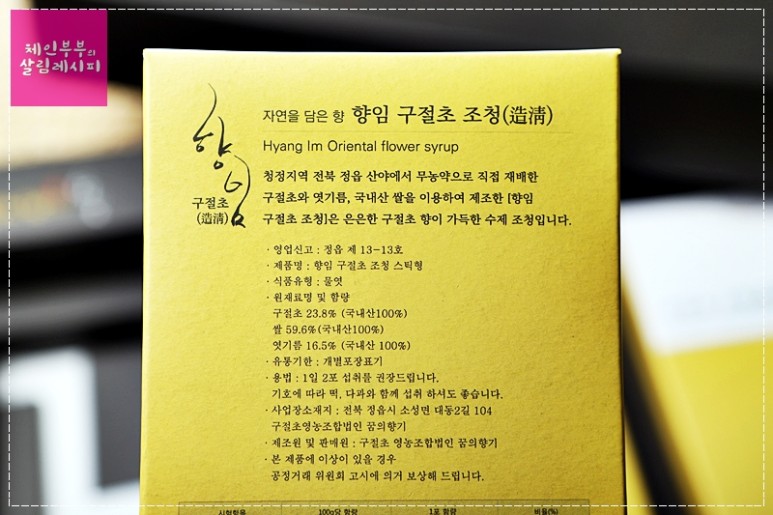 체인부부의
살림레시피
향임
구절초
(造淸)
자연을 담은 향 향임 구절초 조청(造淸)
Hyang Im Oriental flower syrup
청정지역 전북 정읍 산야에서 무농약으로 직접 재배한
구절초와 엿기름, 국내산 쌀을 이용하여 제조한 [향임
구절초 조청]은 은은한 구절초 향이 가득한 수제 조청입니다.
· 영업신고 : 정읍 제 13-13호
· 제품명 : 향임 구절초 조청 스틱형
· 식품유형 : 물엿
· 원재료명 및 함량
구절초 23.8% (국내산100%)
쌀 59.6%(국내산100%)
엿기름 16.5% (국내산 100%)
· 유통기한 : 개별포장표기
· 용법 : 1일 2포 섭취를 권장드립니다.
기호에 따라 떡, 다과와 함께 섭취 하셔도 좋습니다.
· 사업장소재지 : 전북 정읍시 소성면 대동2길 104
구절초영농조합법인 꿈의향기
· 제조원 및 판매원 : 구절초 영농조합법인 꿈의향기
· 본 제품에 이상이 있을 경우
공정거래 위원회 고시에 의거 보상해 드립니다.
시험항목 100g당 함량 1포 함량 비율(%)